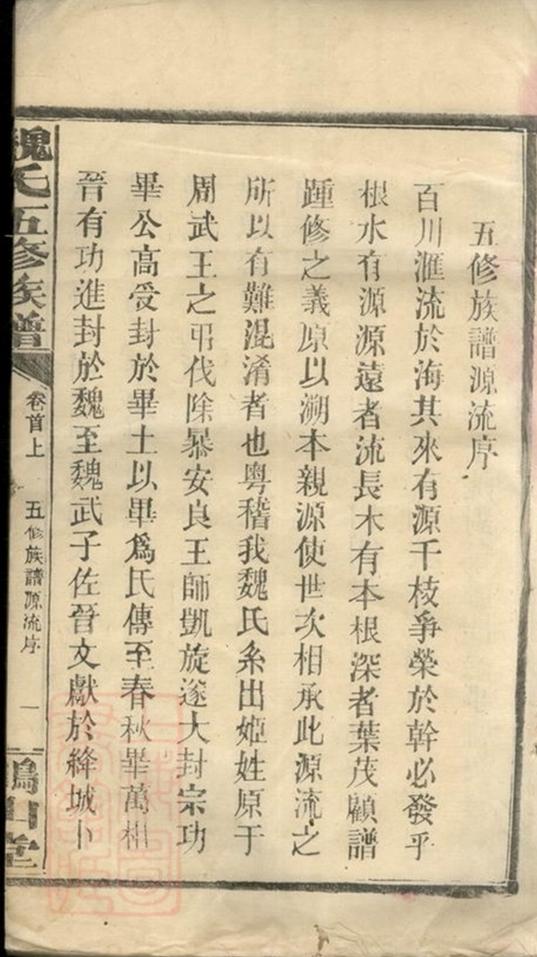 五修族譜源流序
百川滙流於海其來有源千枝爭榮於幹必發乎
根水有源源遠者流長木有本根深者葉茂顧譜
踵修之義原以溯本親源使世次相承此源流之
所以有難混淆者也粵稽我魏氏系出姬姓原于
周武王之弔伐除暴安良王師凱旋遂大封宗功
畢公高受封於畢土以畢爲氏傳至春秋畢萬相
晉有功進封於魏至魏武子佐晉文獻於絳城卜
魏氏五修族譜
卷首上
五修族譜源流序
一
山堂